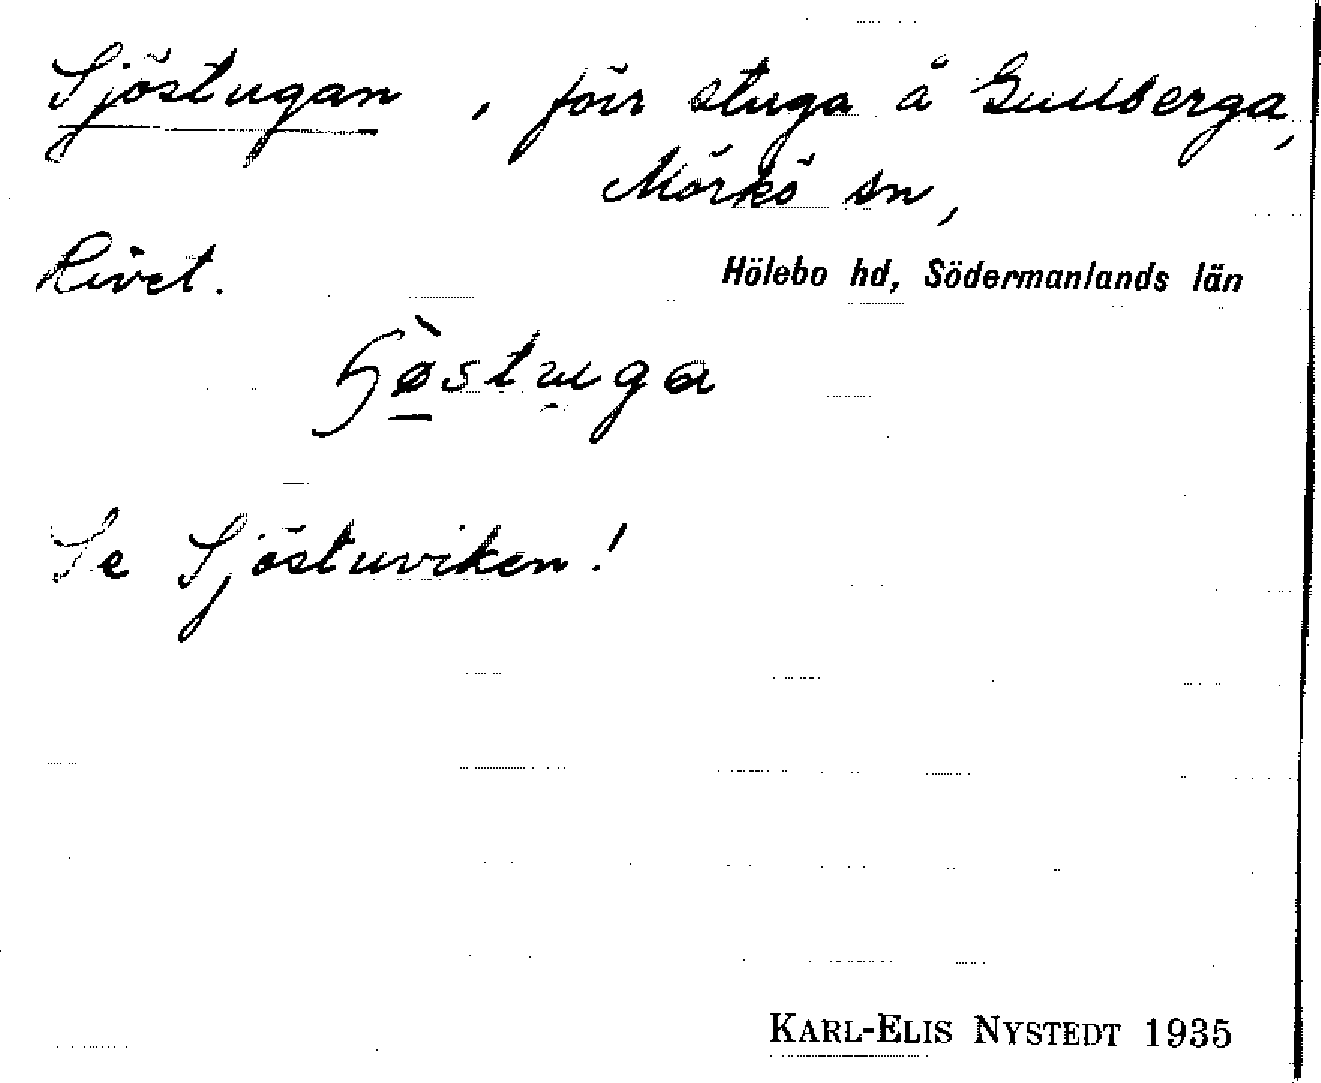 Sjöstugan, förr stuga å Gullberga,
Mörkö sn,
Rivet.
Hölebo hd, Södermanlands län
Se Sjöstuviken!
KARL-ELIS NYSTEDT 1935